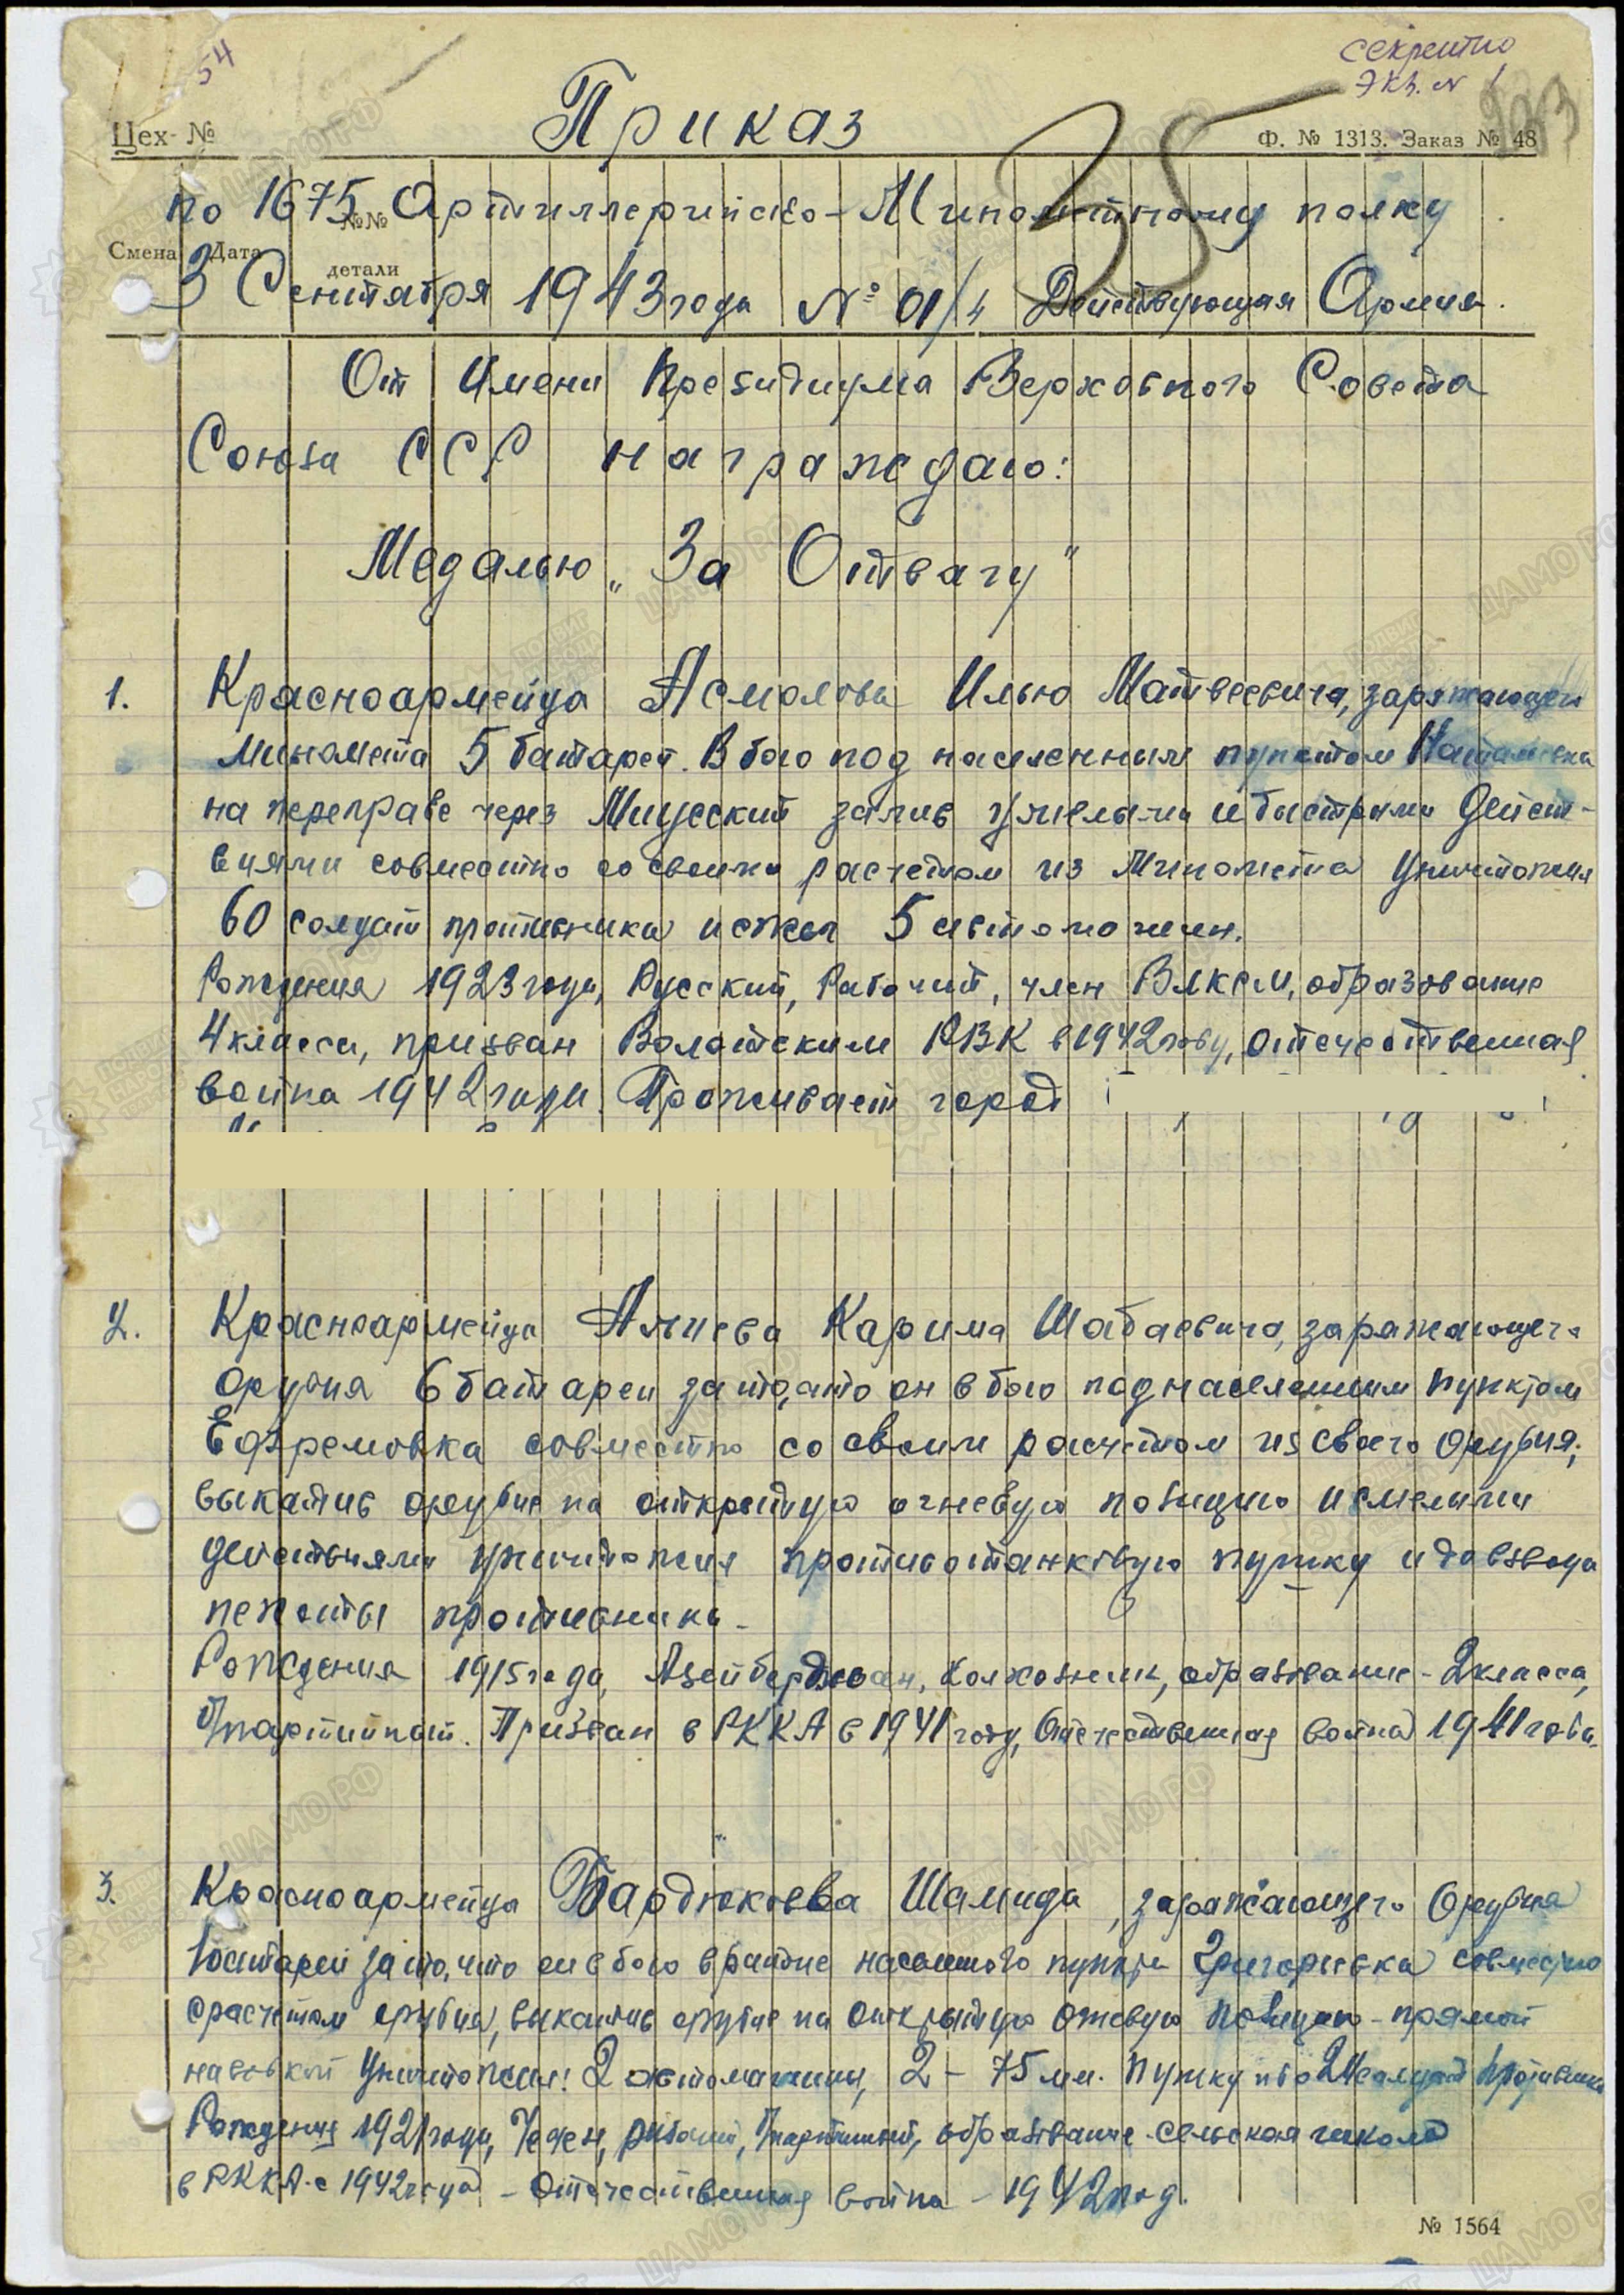 54
секретно
экз. № 1
Приказ
Цех- №
Ф. № 1313. Заказ № 48
35
по 1675 Артиллерийско-Минометному полку
№№
Смена Дата
детали
3 Сентября 1943 года № 01/4 Действующая Армия.
От имени Президиума Верховного Совета
Союза ССР награждаю:
Медалью „За Отвагу"
1. Красноармейца Асмолова Илью Матвеевича, заряжающего
миномета 5 батареи. В бою под населенным пунктом Наталовка
на переправе через Миусский залив умелыми и быстрыми дейст-
виями совместно со своим расчетом из миномета уничтожил
60 солдат противника и сжег 5 автомашин.
Рождения 1923 года, Русский, Рабочий, член ВЛКСМ, образование
4 класса, призван РВК в 1942 году, отечественная
война 1942 года. Проживает город
2. Красноармейца Алиева Карима Шабаевича, заряжающего
орудия 6 батареи за то, что он в бою под населенным пунктом
Ефремовка совместно со своим расчетом из своего орудия,
выкатив орудие на открытую огневую позицию и смелыми
действиями уничтожил противотанковую пушку и до взвода
пехоты противника.
Рождения 1915 года, Азейберджан, колхозник, образование - 2 класса,
б/партийный. Призван в РККА в 1941 году, Отечественная война 1941 года.
3. Красноармейца Бардюкоева Шамида, заряжающего Орудия
1 батареи за то, что он в бою в районе населенного пункта Григорьевка совместно
с расчетом орудия, выкатив орудие на открытую огневую позицию - прямой
наводкой уничтожил: 2 автомашины, 2 - 75 мм. пушку и до солдат противника
Рождения 1921 года, Чечен, рабочий, б/партийный, образование - сельская школа
в РККА с 1942 года - Отечественная война - 1942 год.
№ 1564